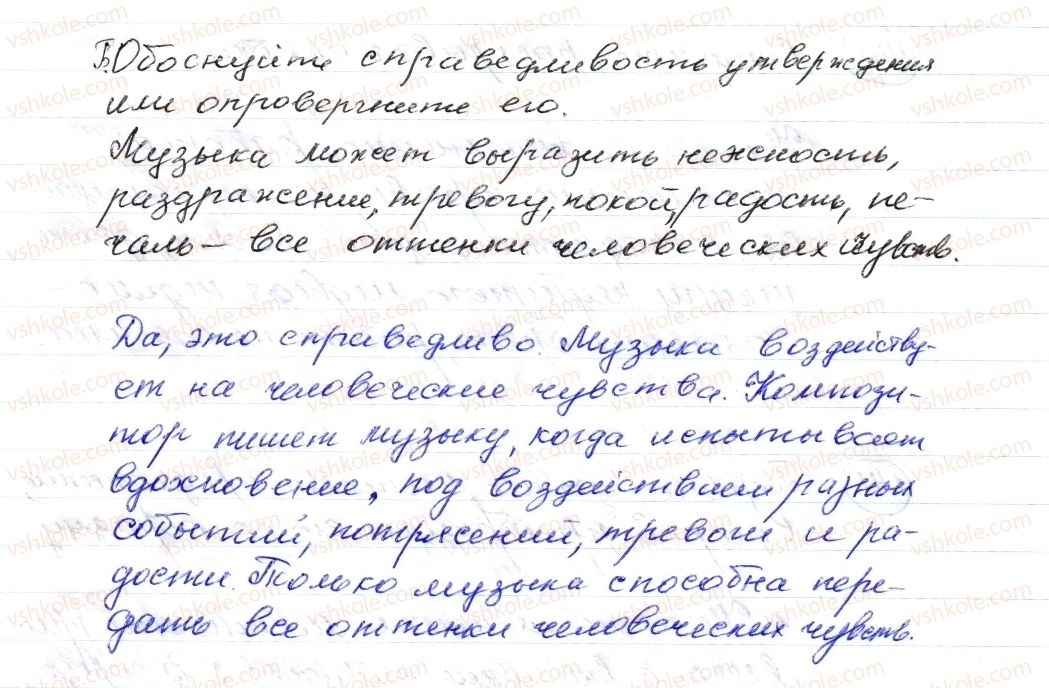 Б.Обоснуйте справедливость утверждения
или опровергните его.
Музыка может выразить нежность,
раздражение, тревогу, покой, радость, пе-
чаль - все оттенки человеческих чувств.
Да, это справедливо. Музыка воздейству-
ет на человеческие чувства. Компози-
тор пишет музыку, когда испытывает
вдохновение, под воздействием разных
событий, потрясений, тревоги и ра-
дости. Только музыка способна пере-
дать все оттенки человеческих чувств.